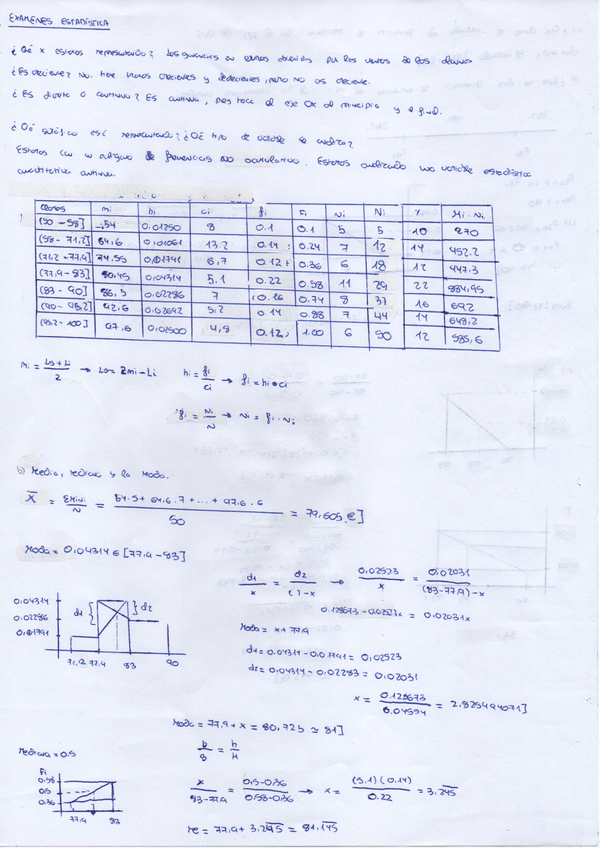 EXAMENES ESTADÍSTICA
¿Qué x estamos representando? Las ganancias en euros obtenidas por las ventas de los
¿Es creciente? No, tiene tramos crecientes y decrecientes, pero no es creciente.
¿Es discreta o continua? Es continua, pues toca el eje OX al principio y al final.
¿Qué gráfico está representado? ¿Qué tipo de variable se analiza?
Estamos con un polígono de frecuencias no acumulativo. Estamos analizando una variable estadística
cuantitativa continua.
Clases mi hi ci fi Fi Ni Ni % Mi·Ni
[50-58] 54 0,01250 8 0.1 0.1 5 5 10 270
(58-71,2] 64,6 0,01061 13.2 0.14 0.24 7 12 14 452.2
(71,2-77,9] 74,55 0,01791 6,7 0.12 0.36 6 18 12 447,3
(77,9-83] 80,45 0,04314 5,1 0.22 0.58 11 29 22 884,95
(83-90] 86,5 0.02286 7 0.16 0.74 8 37 16 692
(90-95,2] 92,6 0.02692 5,2 0.14 0.88 7 44 14 648,2
(95,2-100] 97,6 0,02500 4,8 0.12 1.00 6 50 12 585,6
mi = Ls+Li / 2 → Ls = 2mi - Li hi = fi / ci → fi = hi • ci
fi = Ni / N → Ni = fi · N
b) Media, mediana y la moda.
X̄ = ΣMiNi / N = 54·5 + 64,6·7 + ... + 97,6·6 / 50 = 79,605 €]
Moda = 0,04314 ∈ [77,9-83]
d1 / x = d2 / ( )-x → 0,02523 / x = 0,02031 / (83-77,9)-x
0.128673 - 0.02523x = 0.02031x
0,04314
0,02286
0,01791
d1 d2
71,2 77,9 83 90
Moda = x + 77,9
d1 = 0.04314 - 0.01791 = 0,02523
d2 = 0.04314 - 0.02283 = 0.02031
x = 0.128673 / 0.04554 = 2,825494071]
Moda = 77,9 + x = 80,725 ≃ 81]
b / B = h / H
Mediana = 0.5
Fi
0.58
0.5
0.36
77,9 83
x / 83-77,9 = 0.5-0.36 / 0.58-0.36 → x = (5,1)(0.14) / 0.22 = 3,245
Me = 77,9 + 3,245 = 81,145